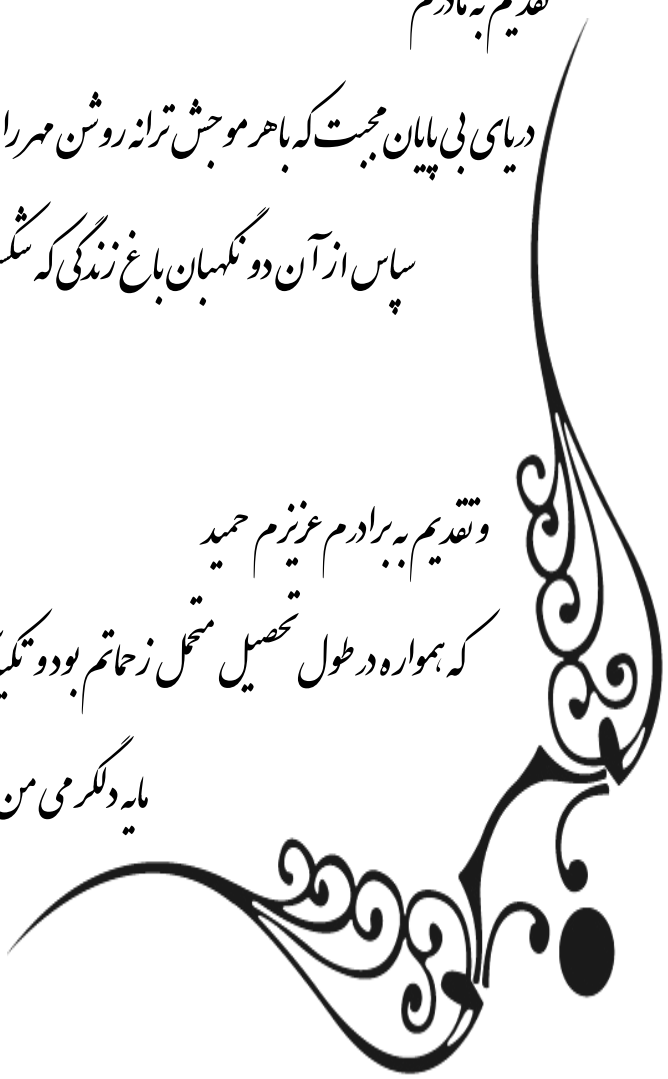 تقدیم به مادرم
دریای بی پایان محبت که با هر موجش ترانه روشن مهر را
سپاس از آن دو نگهبان باغ زندگی که
و تقدیم به برادرم عزیزم حمید
که همواره در طول تحصیل متحمل زحماتم بود و
مایه دلگرمی من